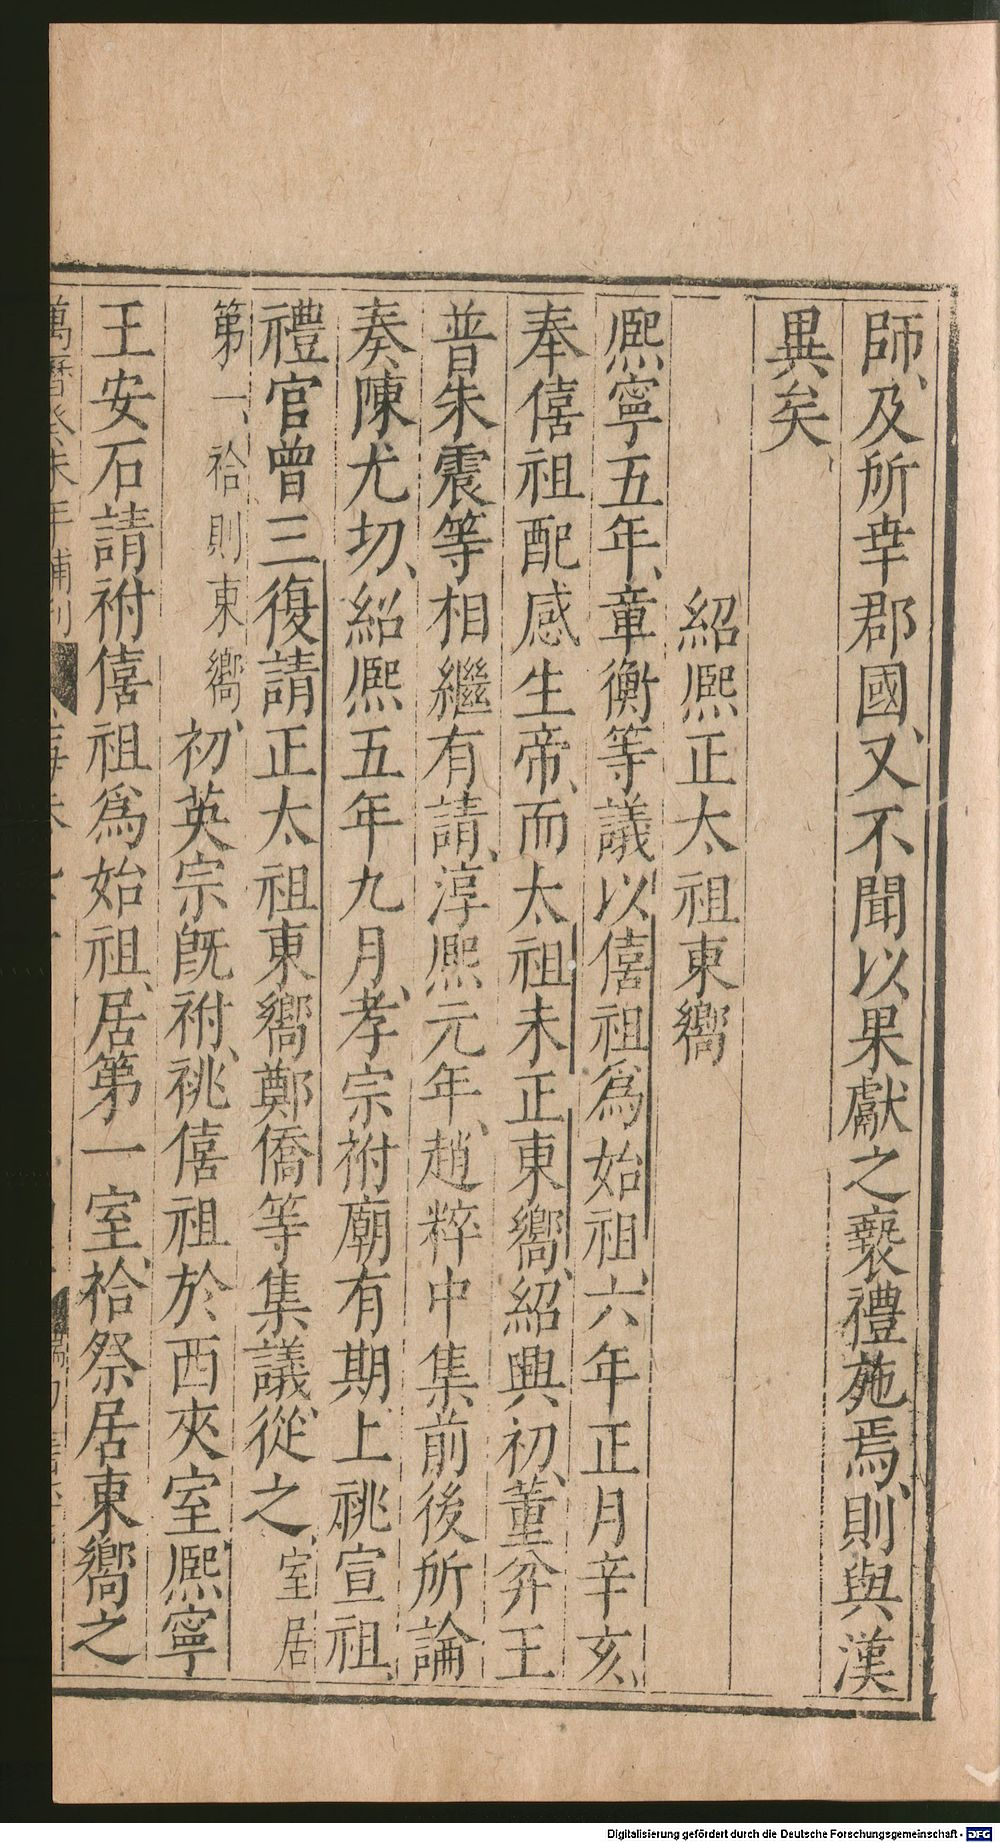 師、及所幸郡國、又不聞以果獻之褻禮施焉、則與漢
異矣、
紹熙正太祖東嚮
熙寧五年、章衡等議以僖祖爲始祖、六年正月辛亥、
奉僖祖配感生帝、而太祖未正東嚮、紹興初、董弅王
普朱震等相繼有請、淳熙元年、趙粹中集前後所論
奏、陳尤切、紹熙五年九月、孝宗祔廟有期上祧宣祖、
禮官曾三復請正太祖東嚮鄭僑等集議、從之、室居
第一、祫則東嚮、初英宗旣祔、祧僖祖於西夾室、熙寧
王安石請祔僖祖爲始祖、居第一室、祫祭居東嚮之
萬曆癸未年補刊
Digitalisierung gefördert durch die Deutsche Forschungsgemeinschaft - DFG